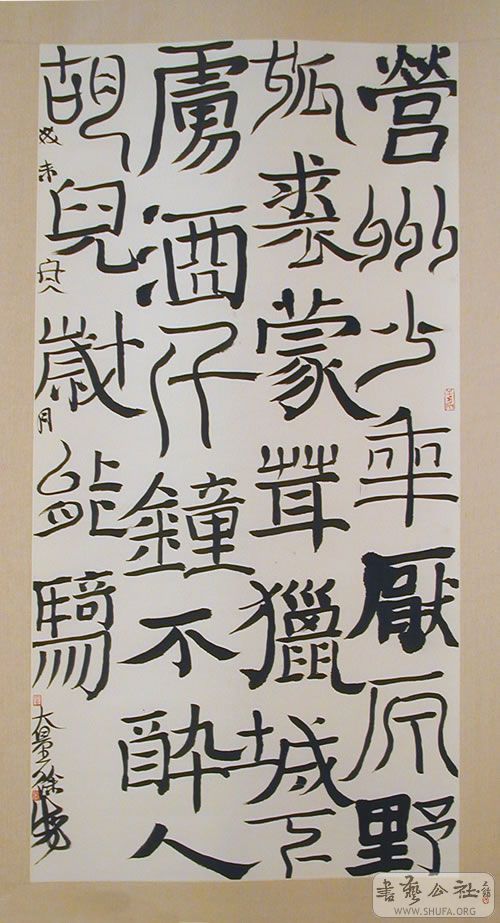 營州少年厭原野
狐裘蒙茸獵城下
虜酒仟鐘不醉人
胡兒十歲能騎
未
月
徐
書藝公社
WWW.SHUFA.ORG